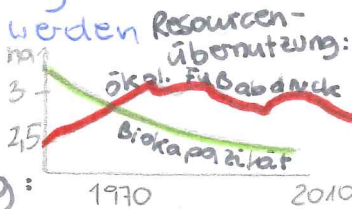 werden Resourcen-
übernutzung:
ha
ökol. Fußabdruck
3
2,5
Biokapazität
g:
1970 2010